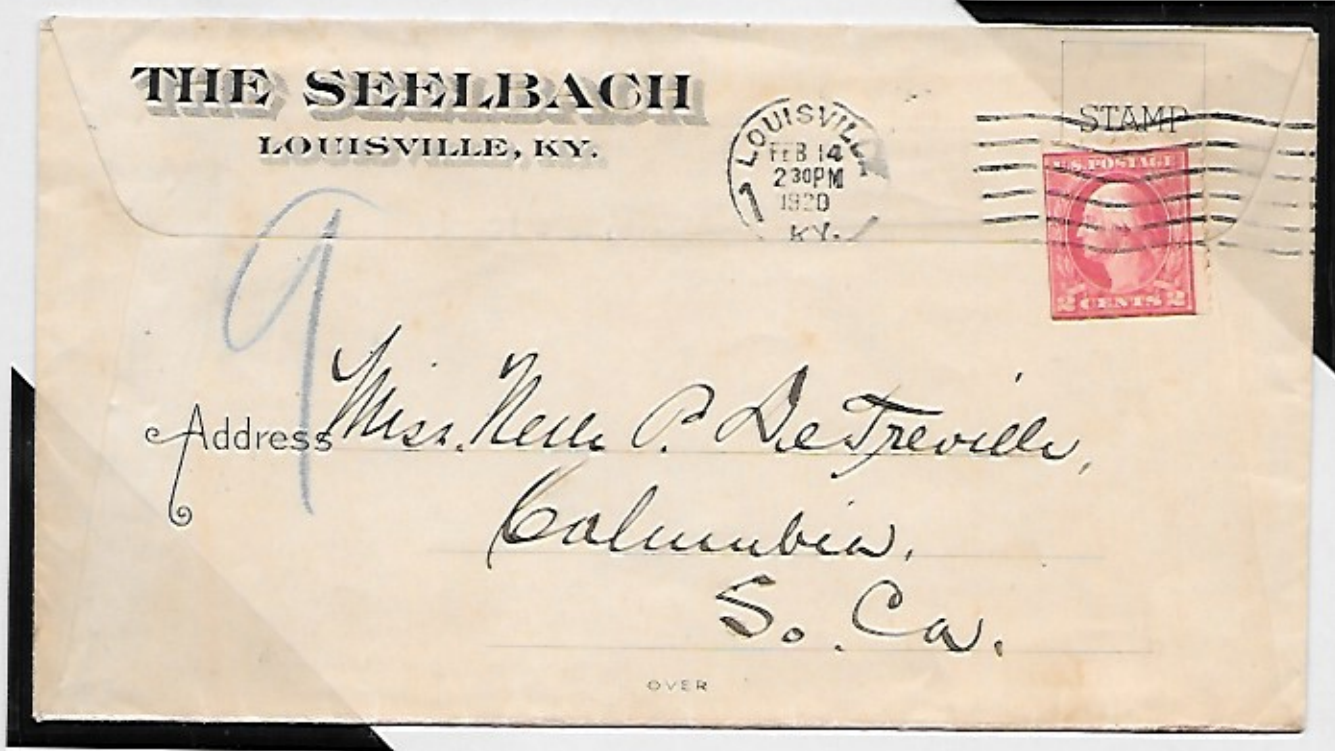 THE SEELBACH
LOUISVILLE, KY.
LOUISVILLE
FEB 14
2 30PM
1920
KY.
1
STAMP
U.S. POSTAGE
2 CENTS 2
9
Address Miss. Nelle P. DeTreville,
Columbia,
So. Ca.
OVER